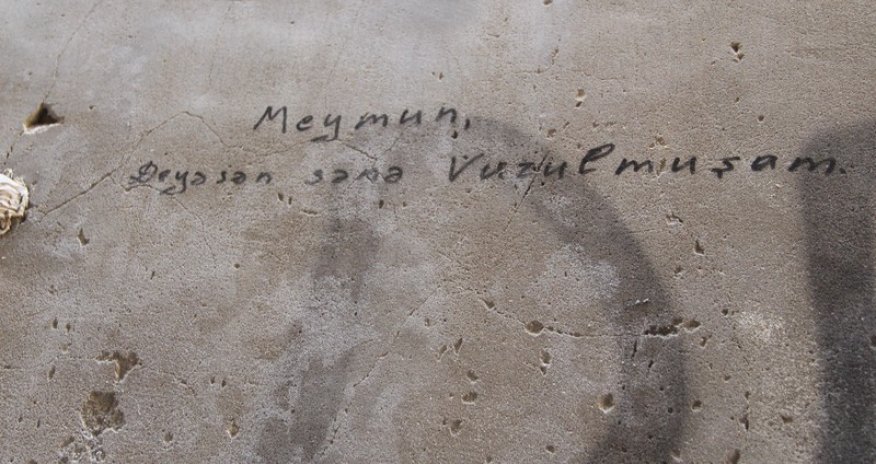 Meymun,
Deyəsən sənə Vuzulmuşam.